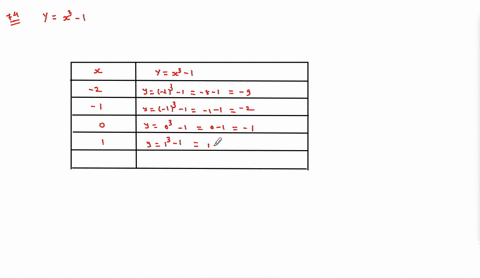 74 y = x³ - 1
x y = x³ - 1
-2 y = (-2)³ - 1 = -8 - 1 = -9
-1 y = (-1)³ - 1 = -1 - 1 = -2
0 y = 0³ - 1 = 0 - 1 = -1
1 y = 1³ - 1 = 1